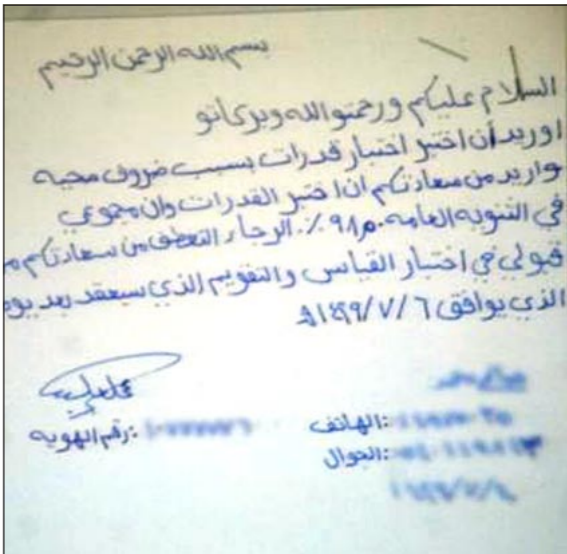 بسم الله الرحمن الرحيم
السلام عليكم ورحمتو الله وبركاتو
اوريد أن اختبر اختبار قدرات بسبب ضروف صحيه
واريد من سعادتكم ان اختبر القدرات وان مجموعي
في الثنويه العامه ٩٨٪. الرجاء التعطف من سعادتكم م
قبولي في اختبار القياس والتقويم الذي سيعقد بعد يوم
الذي يوافق ٦ / ٧ /
الهاتف:
رقم الهويه:
الجوال: